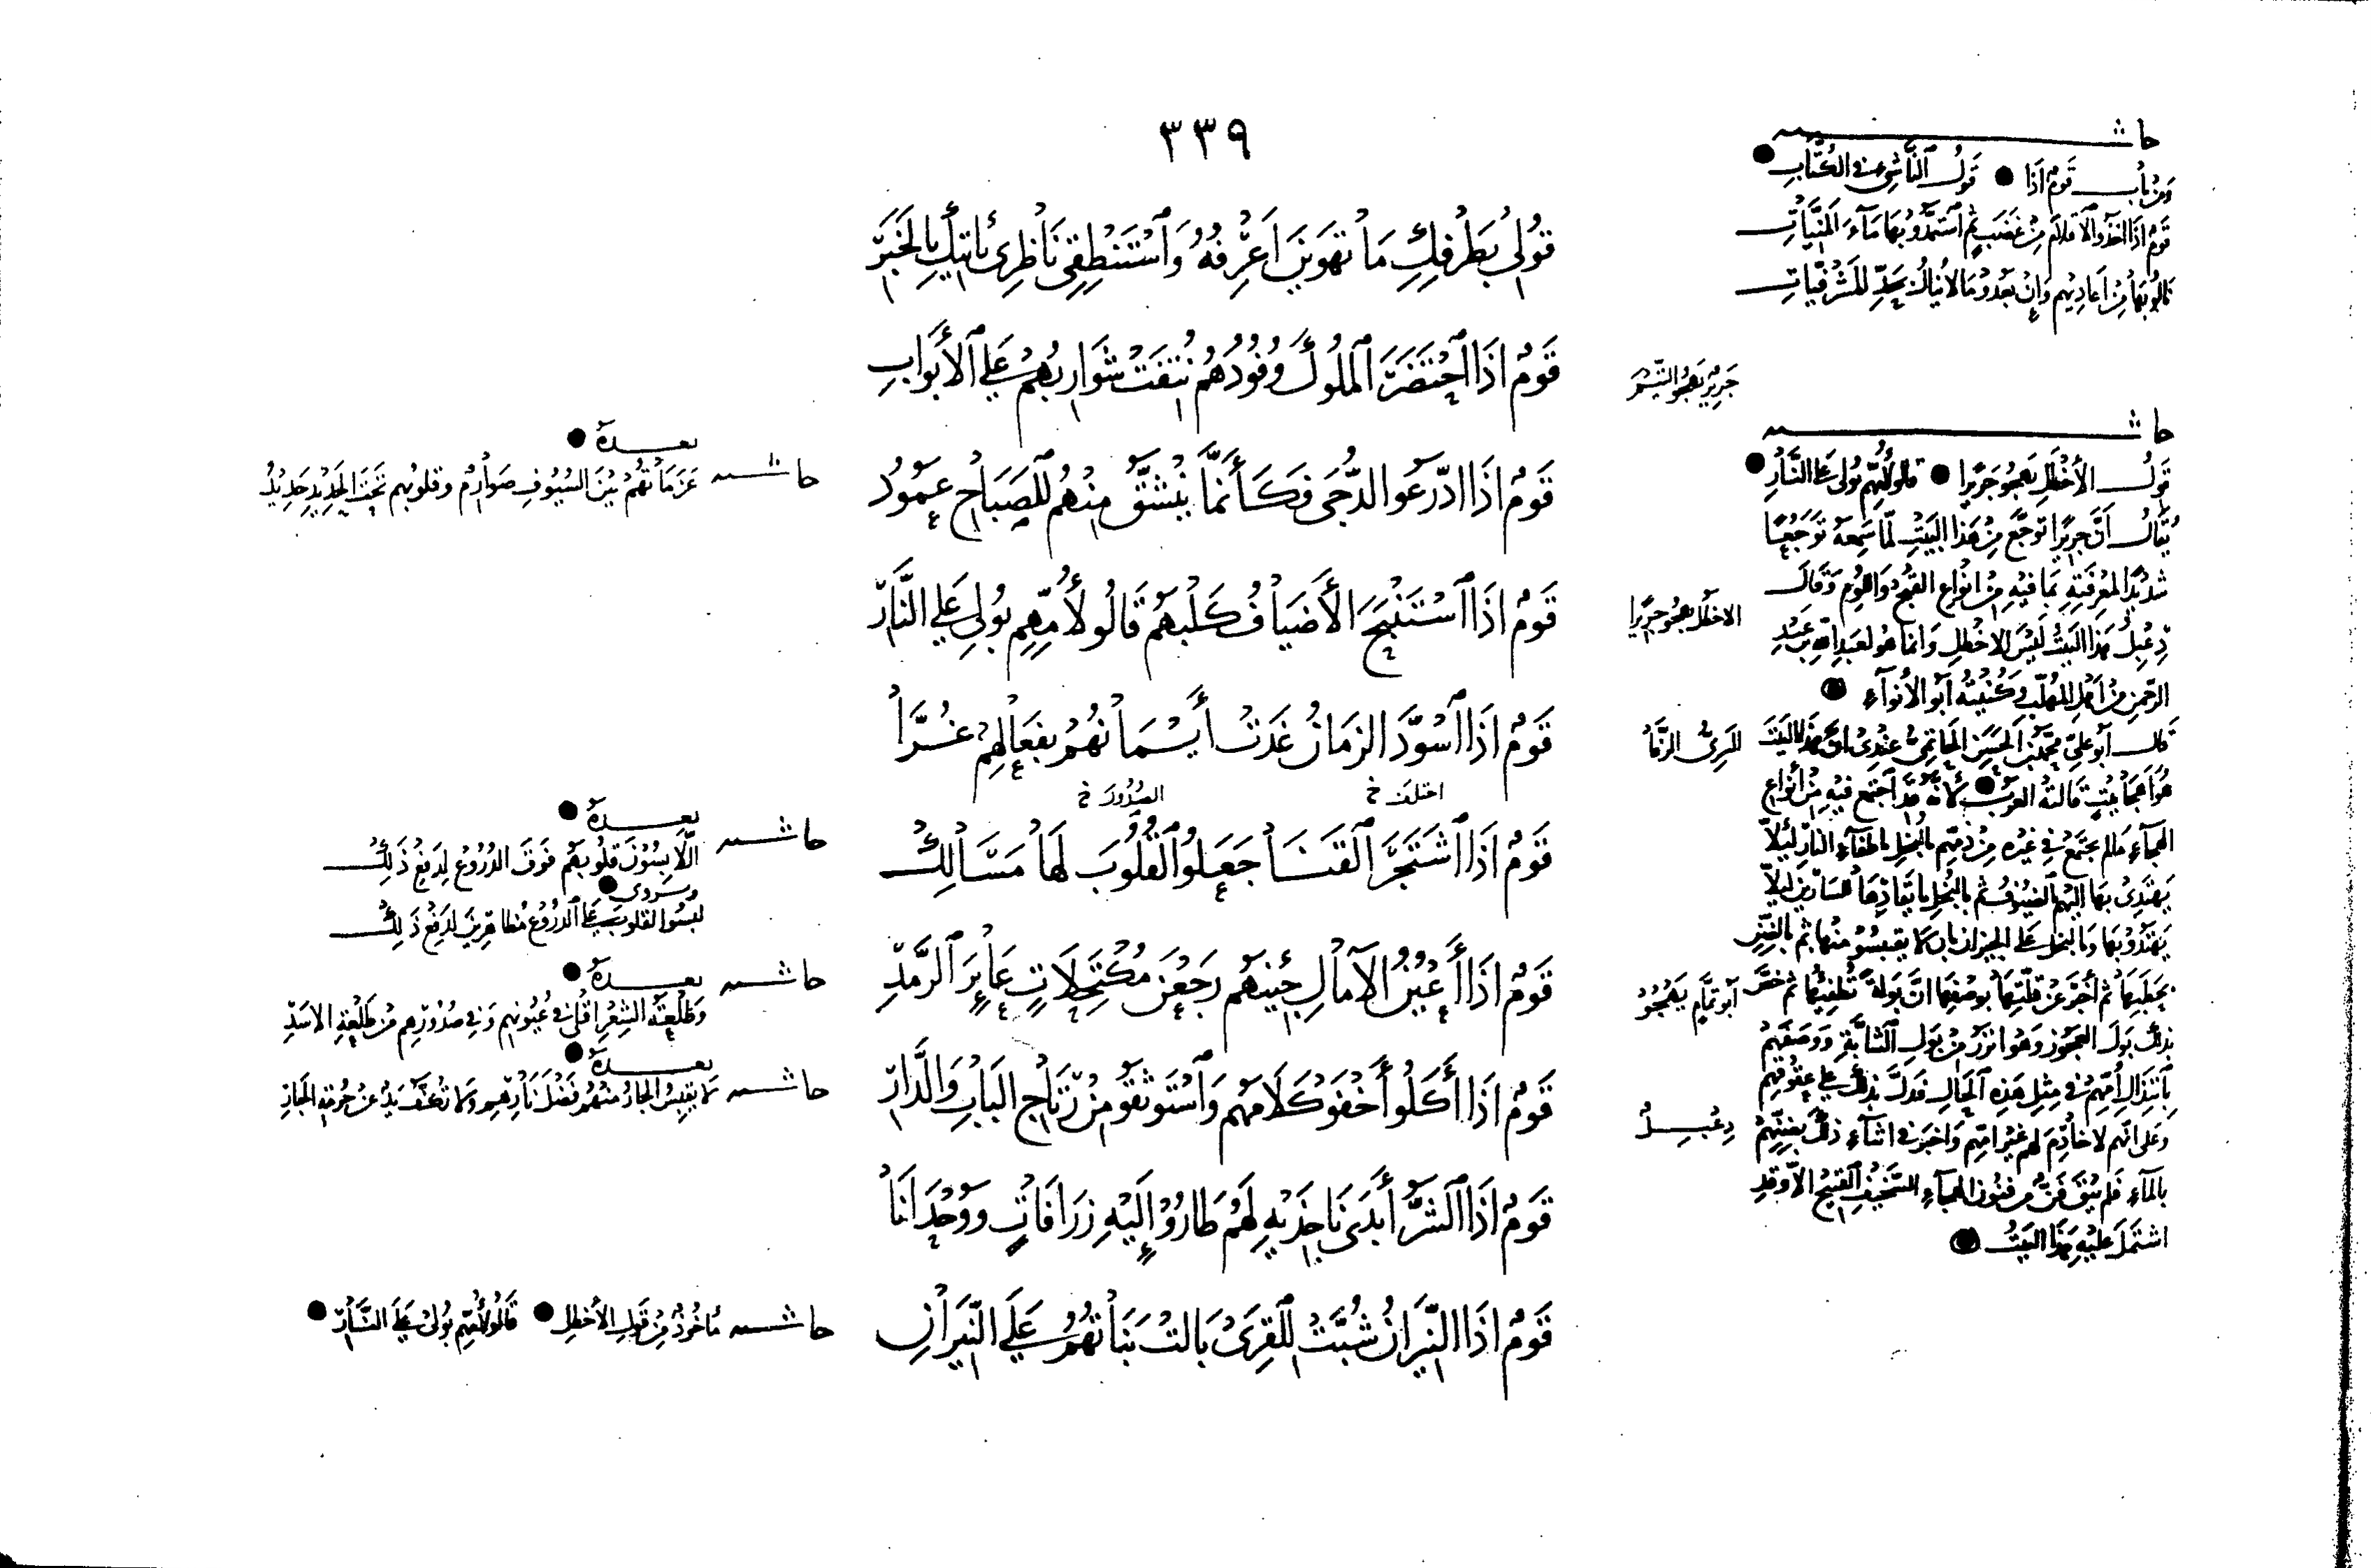 ٣٣٩
قُولِي بِطَرْفِكِ مَا تَهْوَيْنَ أَعْرِفُهُ وَاسْتَنْطِقِي نَاظِرِي يَأْتِيكِ بِالْخَبَرِ
قَوْمٌ إِذَا احْتَضَرَ الْمُلُوكَ وُفُودُهُمْ نُتِفَتْ شَوَارِبُهُمْ عَلَى الْأَبْوَابِ
قَوْمٌ إِذَا ادَّرَعُوا الدُّجَى فَكَأَنَّمَا يَنْشَقُّ مِنْهُمْ لِلصَّبَاحِ عَمُودُ
قَوْمٌ إِذَا اسْتَنْبَحَ الْأَضْيَافُ كَلْبَهُمُ قَالُوا لِأُمِّهِمِ بُولِي عَلَى النَّارِ
قَوْمٌ إِذَا اسْوَدَّ الزَمَانُ غَدَتْ أَيْسَمَاتُهُمْ بِفَعَالِهِمْ غُرَّا
اختلف خ
الصدور خ
قَوْمٌ إِذَا اشْتَجَرَ الْقَنَا جَعَلُوا الْقُلُوبَ لَهَا مَسَالِكْ
قَوْمٌ إِذَا أَعْيُنُ الْآمَالِ جِئْنَهُمُ رَجَعْنَ مُكْتَحِلَاتٍ عَائِرَ الرَّمَدِ
قَوْمٌ إِذَا أَكَلُوا أَخْفَوْا كَلَامَهُمُ وَاسْتَوْثَقُوا مِنْ رِتَاجِ الْبَابِ وَالدَّارِ
قَوْمٌ إِذَا الشَّرُّ أَبْدَى نَاجِذَيْهِ لَهُمْ طَارُوا إِلَيْهِ زَرَافَاتٍ وَوُحْدَانَا
قَوْمٌ إِذَا النِّيرَانُ شُبَّتْ لِلْقِرَى بَالَتْ بَنَاتُهُمْ عَلَى النِّيرَانِ
حاشية
وَمِنْ بَابِ قَوْمٌ إِذَا ● قَوْلُ النَّاشِئِ فِي الْكُتَّابِ ●
قَوْمٌ إِذَا أَخَذُوا الْأَقْلَامَ مِنْ غَضَبٍ ثُمَّ اسْتَمَدُّوا بِهَا مَاءَ الْمَنِيَّاتِ
نَالُوا بِهَا مِنْ أَعَادِيهِمْ وَإِنْ بَعُدُوا مَا لَا يُنَالُ بِحَدِّ الْمَشْرَفِيَّاتِ
جَرِيرٌ يَهْجُو التَّيْمَ
حاشية
قَوْلُ الْأَخْطَلِ يَهْجُو جَرِيرًا ● قَالُوا لِأُمِّهِمِ بُولِي عَلَى النَّارِ ●
يُقَالُ أَنَّ جَرِيرًا تَوَجَّعَ مِنْ هَذَا الْبَيْتِ لَمَّا سَمِعَهُ تَوَجُّعًا
شَدِيدًا لِمَعْرِفَتِهِ بِمَا فِيهِ مِنْ أَنْوَاعِ الْقُبْحِ وَاللُّؤْمِ وَقَالَ
دِعْبِلٌ هَذَا الْبَيْتُ لَيْسَ لِلْأَخْطَلِ وَإِنَّمَا هُوَ لِعَبْدِ اللهِ بْنِ عَبْدِ
الرَّحْمَنِ مِنْ آلِ الْمُهَلَّبِ وَكُنْيَتُهُ أَبُو الْأَنْوَاءِ ●
قَالَ أَبُو عَلِيٍّ مُحَمَّدُ بْنُ الْحَسَنِ الْحَاتِمِيُّ عِنْدِي أَنَّ هَذَا الْبَيْتَ
هُوَ أَهْجَا بَيْتٍ قَالَتْهُ الْعَرَبُ ● لِأَنَّهُ قَدِ اجْتَمَعَ فِيهِ مِنْ أَنْوَاعِ
الْهِجَاءِ مَا لَمْ يَجْتَمِعْ فِي غَيْرِهِ مِنْ ذَمِّهِمْ بِالْبُخْلِ بِإِطْفَاءِ النَّارِ لِئَلَّا
يَهْتَدِيَ بِهَا إِلَيْهِمُ الضُّيُوفُ ثُمَّ بِالْبُخْلِ بِإِيقَادِهَا لِلسَّارِينَ لِئَلَّا
يَهْتَدُوا بِهَا وَبِالْبُخْلِ عَلَى الْجِيرَانِ بِأَنْ لَا يَقْتَبِسُوا مِنْهَا ثُمَّ
ثُمَّ أَخْبَرَ عَنْ قِلَّتِهَا بِوَصْفِهَا أَنَّ بَوْلَةً تُطْفِئُهَا ثُمَّ خَصَّ
بِذَلِكَ بَوْلَ الْعَجُوزِ وَهُوَ أَنْزَرُ مِنْ بَوْلِ الشَّابَّةِ وَوَصَفَهُمْ
بِابْتِذَالِ أُمِّهِمْ فِي مِثْلِ هَذِهِ الْحَالِ فَدَلَّ بِذَلِكَ عَلَى عُقُوقِهِمْ
وَعَلَى أَنَّهُمْ لَا خَادِمَ لَهُمْ غَيْرُ أُمِّهِمْ وَأَخْبَرَ فِي أَثْنَاءِ ذَلِكَ
بِالْمَاءِ فَلَمْ يَبْقَ فَنٌّ مِنْ فُنُونِ الْهِجَاءِ السَّخِيفِ الْقَبِيحِ إِلَّا وَقَدِ
اشْتَمَلَ عَلَيْهِ هَذَا الْبَيْتُ ●
الأخطل يهجو جريرا
السَرِيُّ الرَّفَّاءُ
أَبُو تَمَّامٍ يَهْجُو
دِعْبِلٌ
بعده ●
حاشية عَزَمَاتُهُمْ بَيْنَ السُّيُوفِ صَوَارِمٌ وَقُلُوبُهُمْ تَحْتَ الْحَدِيدِ حَدِيدُ
بعده ●
حاشية اللَّابِسُونَ قُلُوبَهُمْ فَوْقَ الدُّرُوعِ لِدَفْعِ ذَلِكْ
ويروى ●
لَبِسُوا الْقُلُوبَ عَلَى الدُّرُوعِ مُظَاهِرِينَ لِدَفْعِ ذَلِكْ
بعده ●
حاشية وَطَلْعَةُ الشِّعْرِ أَقْلَى فِي عُيُونِهِمُ وَفِي صُدُورِهِمِ مِنْ طَلْعَةِ الْأَسَدِ
بعده ●
حاشية لَا يَقْبِسُ الْجَارُ مِنْهُمْ فَضْلَ نَارِهِمِ وَلَا تُكَفُّ يَدٌ عَنْ حُرْمَةِ الْجَارِ
حاشية مَأْخُوذٌ مِنْ قَوْلِ الْأَخْطَلِ ● قَالُوا لِأُمِّهِمِ بُولِي عَلَى النَّارِ ●